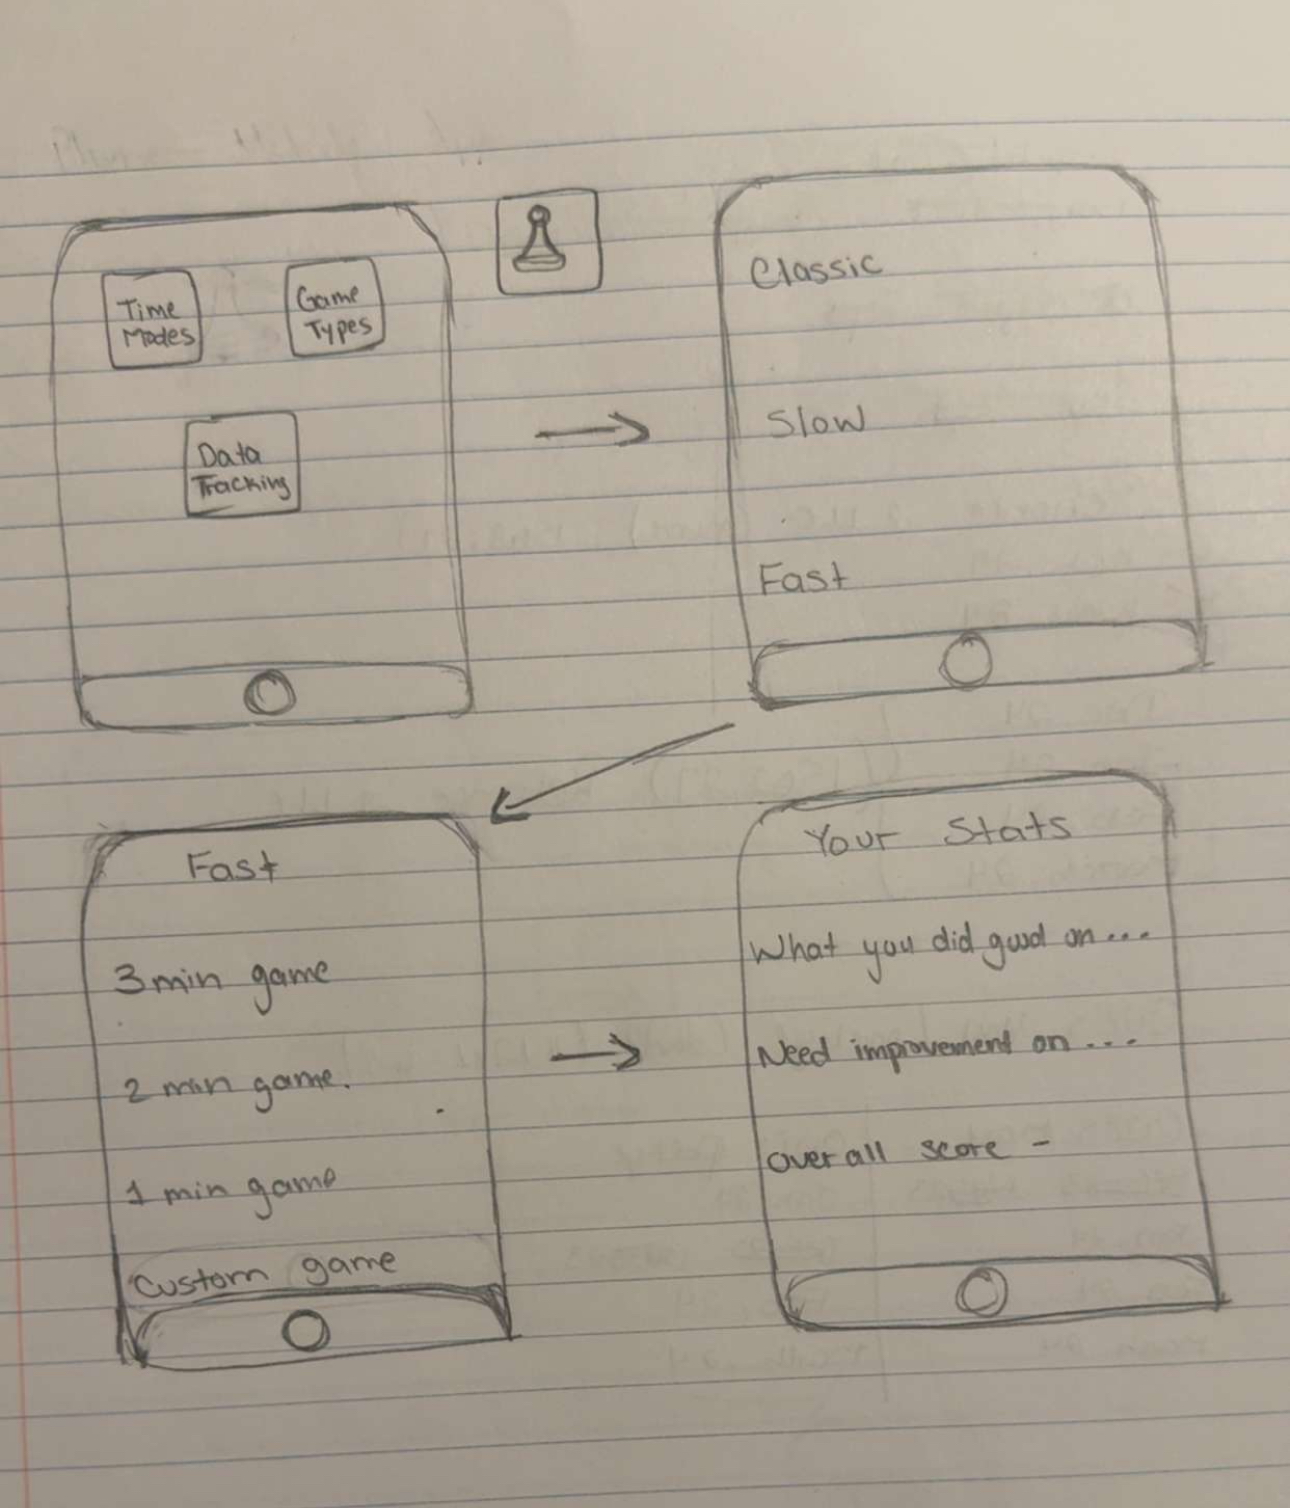 Time
Modes
Game
Types
Data
Tracking
Classic
Slow
Fast
Fast
3 min game
2 min game.
1 min game
Custom game
Your Stats
What you did good on ...
Need improvement on ...
Overall score -